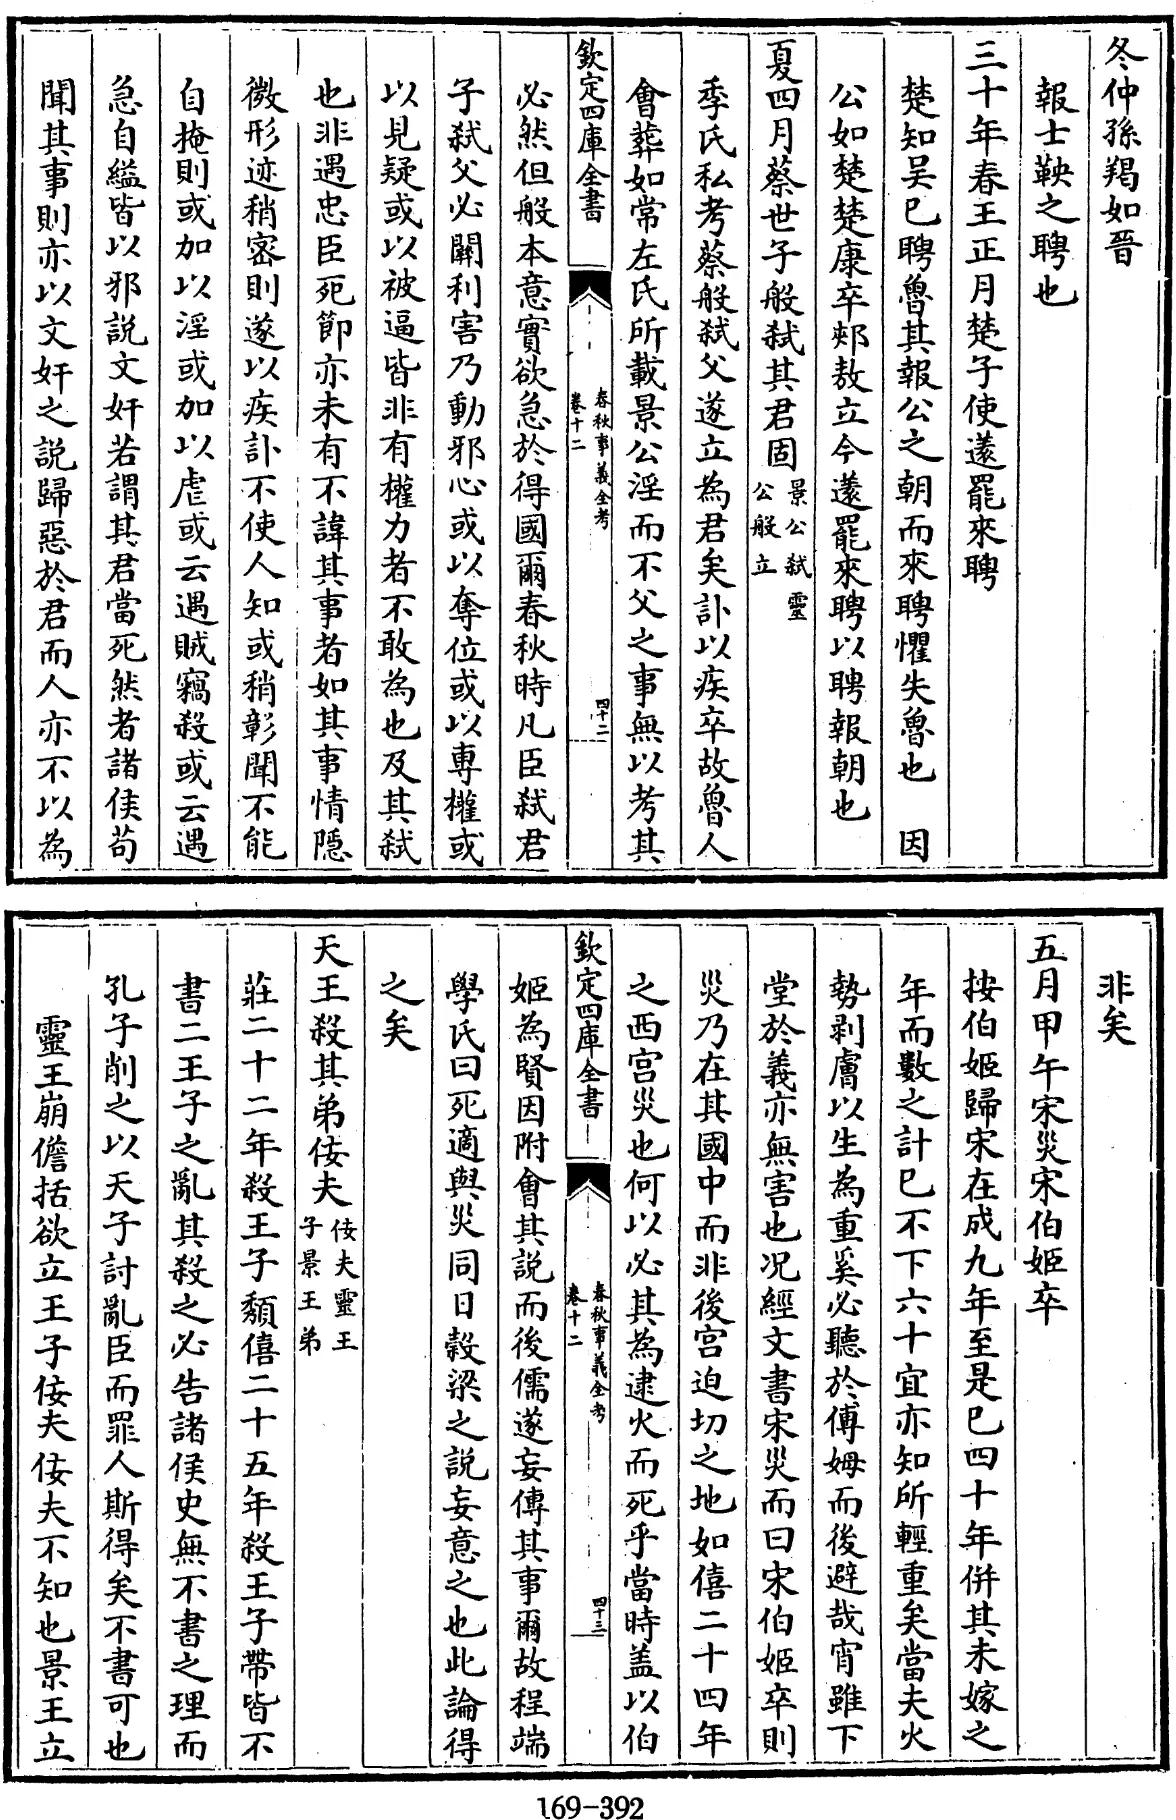 冬仲孫羯如晉
報士鞅之聘也
三十年春王正月楚子使薳罷來聘
楚知吴已聘魯其報公之朝而來聘懼失魯也　因
公如楚楚康卒郟敖立今薳罷來聘以聘報朝也
夏四月蔡世子般弑其君固景公弑靈
公般立
季氏私考蔡般弑父遂立為君矣訃以疾卒故魯人
會葬如常左氏所載景公淫而不父之事無以考其
欽定四庫全書
春秋事義全考
卷十二
四十二
必然但般本意實欲急於得國爾春秋時凡臣弑君
子弑父必關利害乃動邪心或以奪位或以專權或
以見疑或以被逼皆非有權力者不敢為也及其弑
也非遇忠臣死節亦未有不諱其事者如其事情隱
微形迹稍密則遂以疾訃不使人知或稍彰聞不能
自掩則或加以淫或加以虐或云遇賊竊殺或云遇
急自縊皆以邪説文奸若謂其君當死然者諸侯苟
聞其事則亦以文奸之説歸惡於君而人亦不以為
非矣
五月甲午宋災宋伯姬卒
按伯姬歸宋在成九年至是已四十年併其未嫁之
年而數之計已不下六十宜亦知所輕重矣當夫火
勢剥膚以生為重奚必聽於傅姆而後避哉宵雖下
堂於義亦無害也况經文書宋災而曰宋伯姬卒則
災乃在其國中而非後宫迫切之地如僖二十四年
之西宫災也何以必其為逮火而死乎當時蓋以伯
欽定四庫全書
春秋事義全考
卷十二
四十三
姬為賢因附會其説而後儒遂妄傳其事爾故程端
學氏曰死適與災同日穀梁之説妄意之也此論得
之矣
天王殺其弟佞夫佞夫靈王
子景王弟
莊二十二年殺王子頽僖二十五年殺王子帶皆不
書二王子之亂其殺之必告諸侯史無不書之理而
孔子削之以天子討亂臣而罪人斯得矣不書可也
靈王崩儋括欲立王子佞夫佞夫不知也景王立
169-392